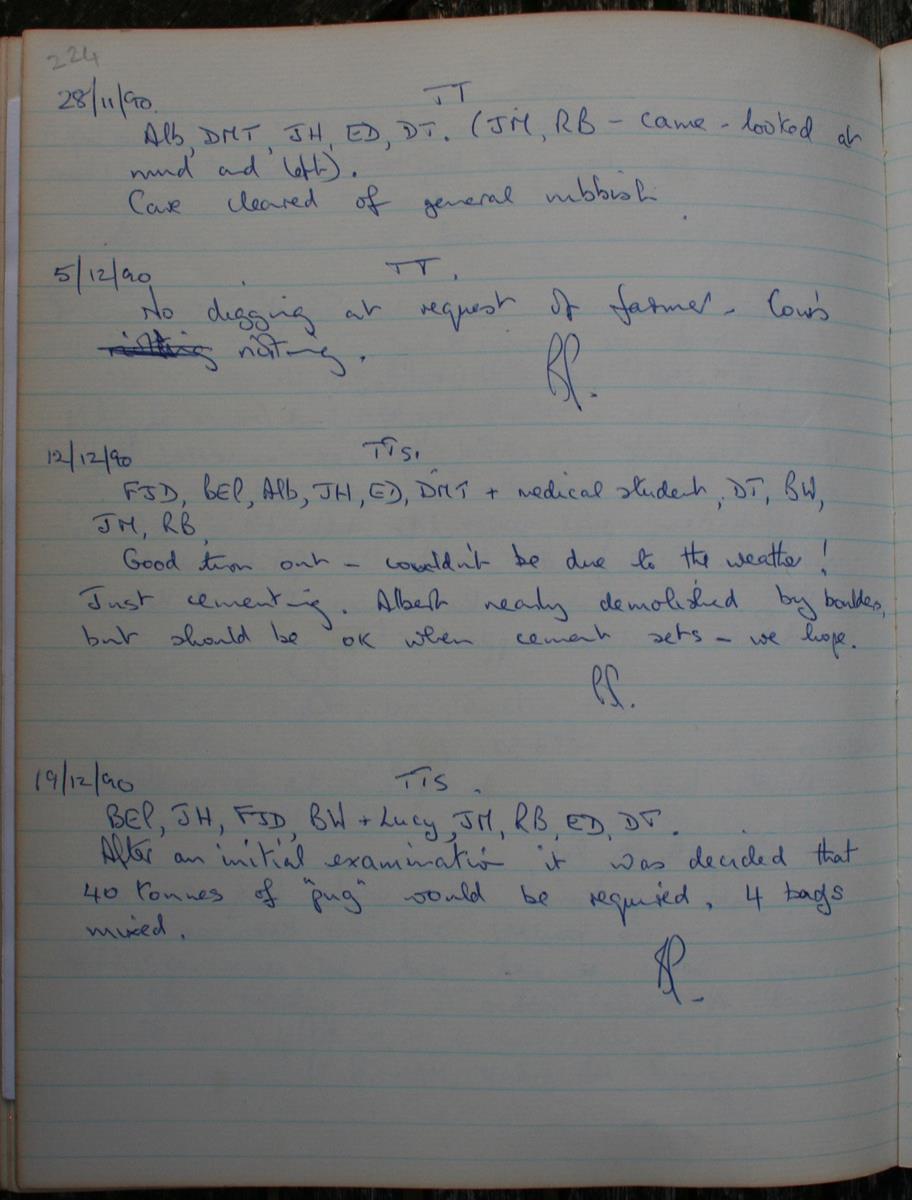 224
28/11/90. TT
Alb, DMT, JH, ED, DT. (JM, RB - came - looked at
mud and left).
Cave cleared of general rubbish.
5/12/90 TT.
No digging at request of farmer - Cow's
risting.
12/12/90 TTS.
FJD, BEP, Alb, JH, ED, DMT + medical student, DT, BW,
JM, RB,
Good turn out - couldn't be due to the weather!
Just cementing. Albert nearly demolished by boulder,
but should be ok when cement sets - we hope.
19/12/90 TTS.
BEP, JH, FJD, BW + Lucy, JM, RB, ED, DT.
After an initial examination it was decided that
40 tonnes of "pug" would be required. 4 bags
mixed.